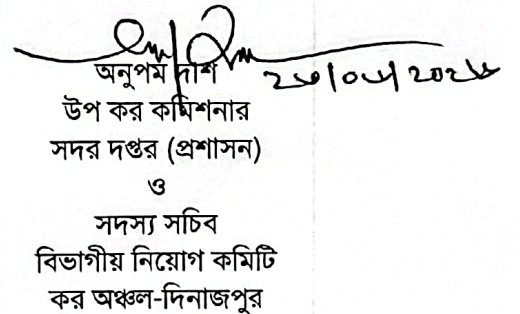 অনুপম দাশ
উপ কর কমিশনার
সদর দপ্তর (প্রশাসন)
ও
সদস্য সচিব
বিভাগীয় নিয়োগ কমিটি
কর অঞ্চল-দিনাজপুর